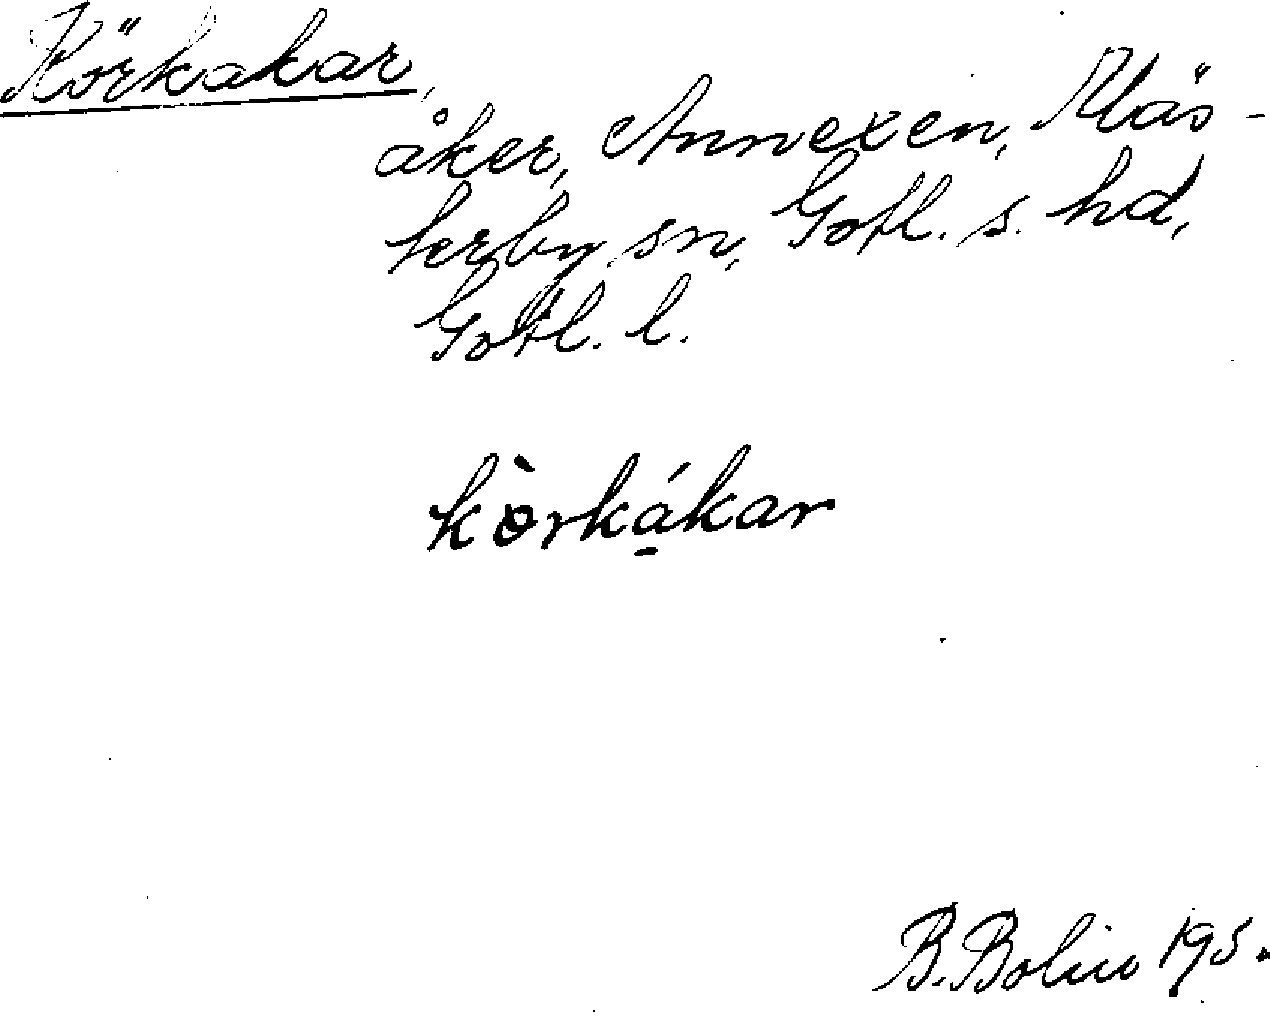 Körkakar,
åker, Annexen, Kläs-
kerby sn, Gotl. s. hd,
Gotl. l.
kòrkákar
B. Bolin 195